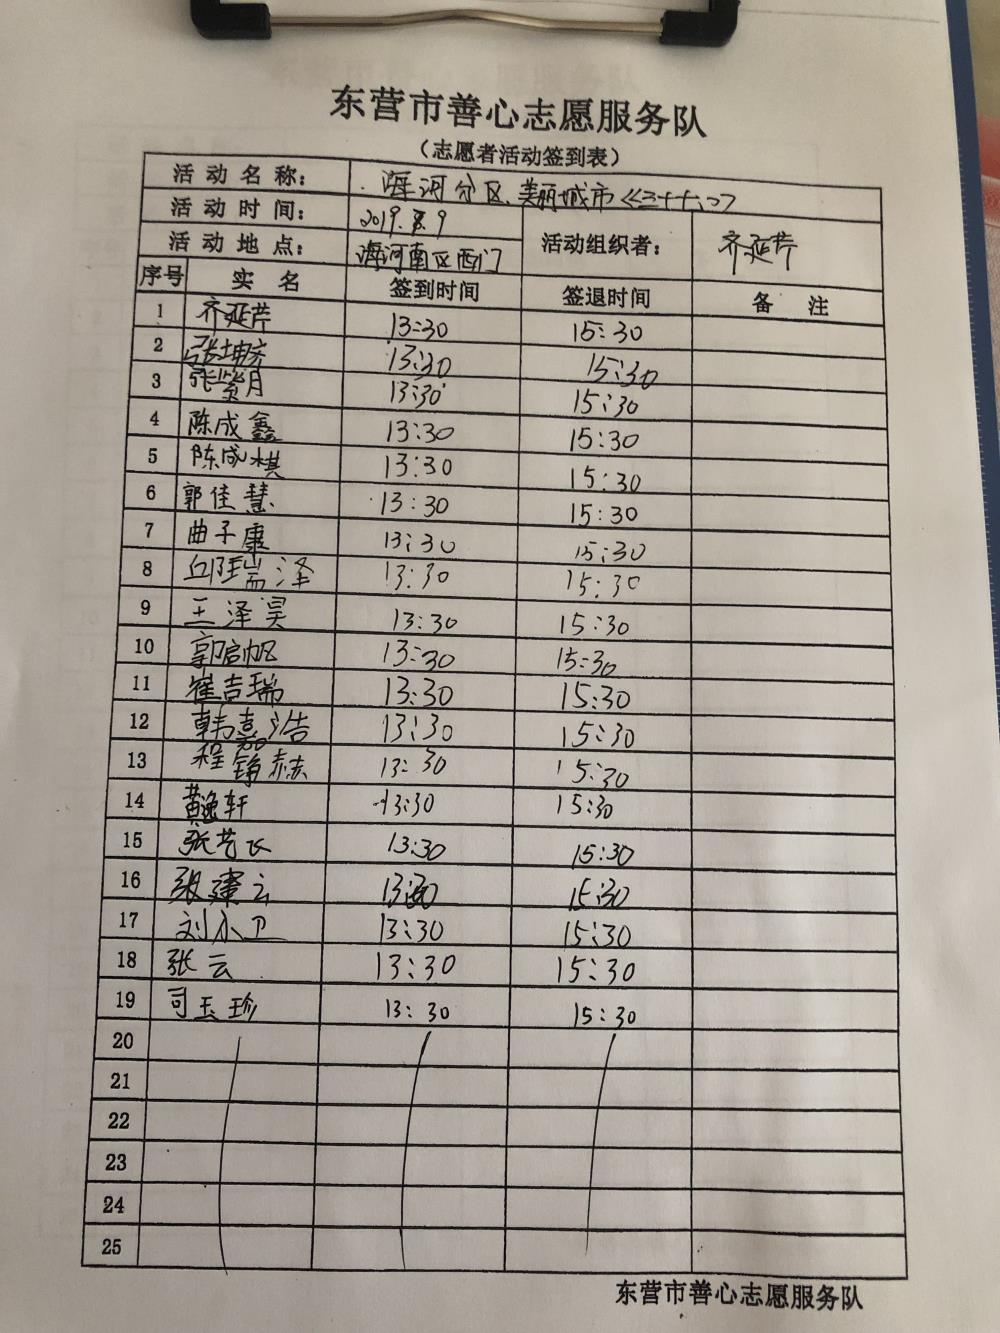 东营市善心志愿服务队
（志愿者活动签到表）
活动名称： 海河分区、美丽城市
活动时间： 2019.8.9 活动组织者： 齐延芹
活动地点： 海河南区西门
序号 实名 签到时间 签退时间 备注
1 齐延芹 13:30 15:30
2 张坤芳 13:30 15:30
3 张紫月 13:30 15:30
4 陈成鑫 13:30 15:30
5 陈成棋 13:30 15:30
6 郭佳慧 13:30 15:30
7 曲子康 13:30 15:30
8 邱瑞泽 13:30 15:30
9 王泽昊 13:30 15:30
10 郭启帆 13:30 15:30
11 崔吉瑞 13:30 15:30
12 韩嘉浩 13:30 15:30
13 程铮赫 13:30 15:30
14 黄逸轩 13:30 15:30
15 张艺 13:30 15:30
16 张建云 13:30 15:30
17 刘小卫 13:30 15:30
18 张云 13:30 15:30
19 司玉珍 13:30 15:30
20
21
22
23
24
25
东营市善心志愿服务队